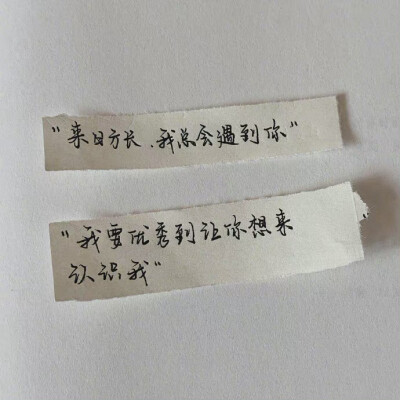 “来日方长、我总会遇到你”
“我要优秀到让你想来
认识我”